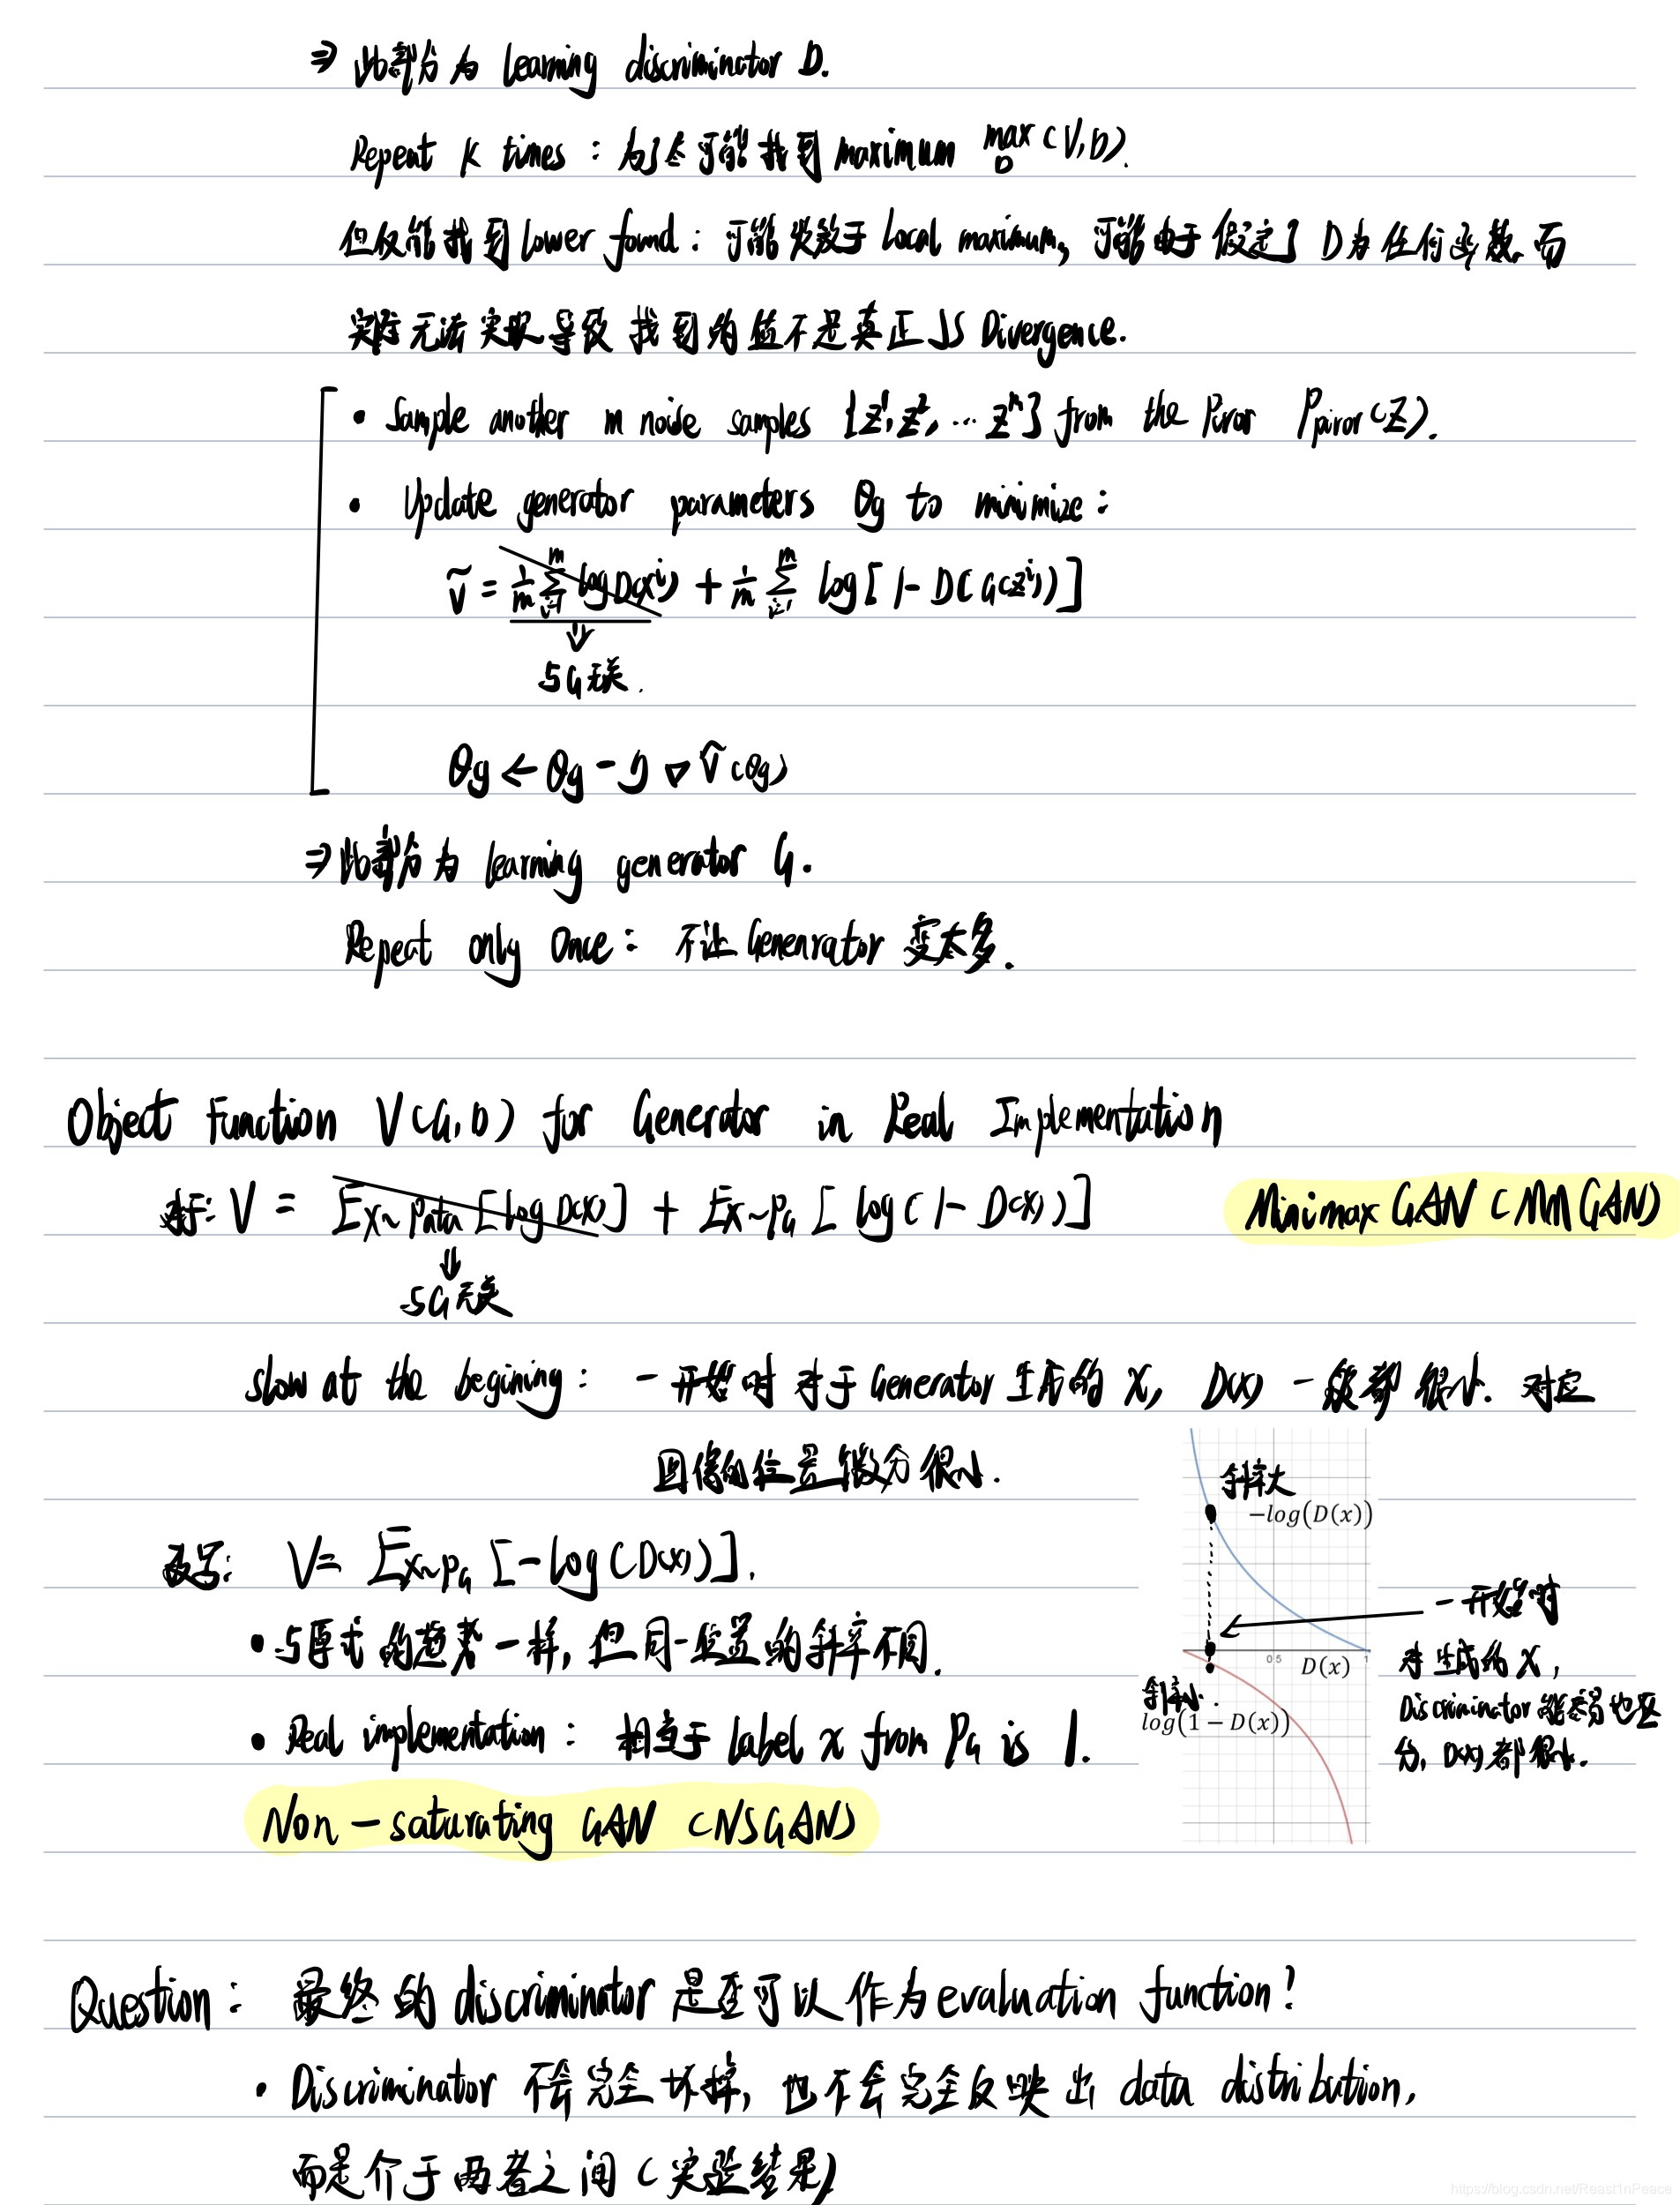 ⇒ 此部分为 learning discriminator D.
Repeat K times : 为了尽可能找到 maximum max_D (V,D).
但仅能找到 lower found : 可能收敛于 Local maximum, 可能由于假定了 D为任何函数,而
实际无法实现导致找到的值不是真正JS Divergence.
• Sample another m noise samples {z¹,z², ··· zᵐ} from the Piror P_piror(Z).
• Update generator parameters θg to minimize :
Ṽ = 1/m Σ_{i=1}^m log D(xⁱ) + 1/m Σ_{i=1}^m log[1-D(G(zⁱ))]
⇓
与G无关.
θg ← θg - η ∇ Ṽ(θg)
⇒ 此部分为 learning generator G.
Repeat only Once : 不让Genenrator 变太多.
Object Function V(G,D) for Generator in Real Implementation
对于: V = E_{x~Pdata}[log D(x)] + E_{x~P_G}[log(1-D(x))] Minimax GAN (MMGAN)
⇓
与G无关
slow at the begining : 一开始时对于Generator生成的 x, D(x) 一般都很小. 对应
图像的位置微分很小.
斜率大
-log(D(x))
改写: V= E_{x~P_G} [-log(D(x))].
一开始时
• 与原式的趋势一样, 但同一位置的斜率不同.
0.5 D(x) 1
对生成的 x,
斜率小.
Discriminator 能容易地区
log(1 - D(x))
分, D(x)都很小.
• Real implementation : 相当于 label x from P_G is 1.
Non-saturating GAN (NSGAN)
Question : 最终的 discriminator 是否可以作为 evaluation function?
• Discriminator 不会完全坏掉, 也不会完全反映出 data distribution,
而是介于两者之间 (实验结果)
https://blog.csdn.net/Reast1nPeace